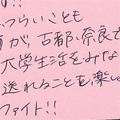 !!
づらいことも
すが 古都、奈良で
大学生活をみな
送れることを楽し
ファイト!!